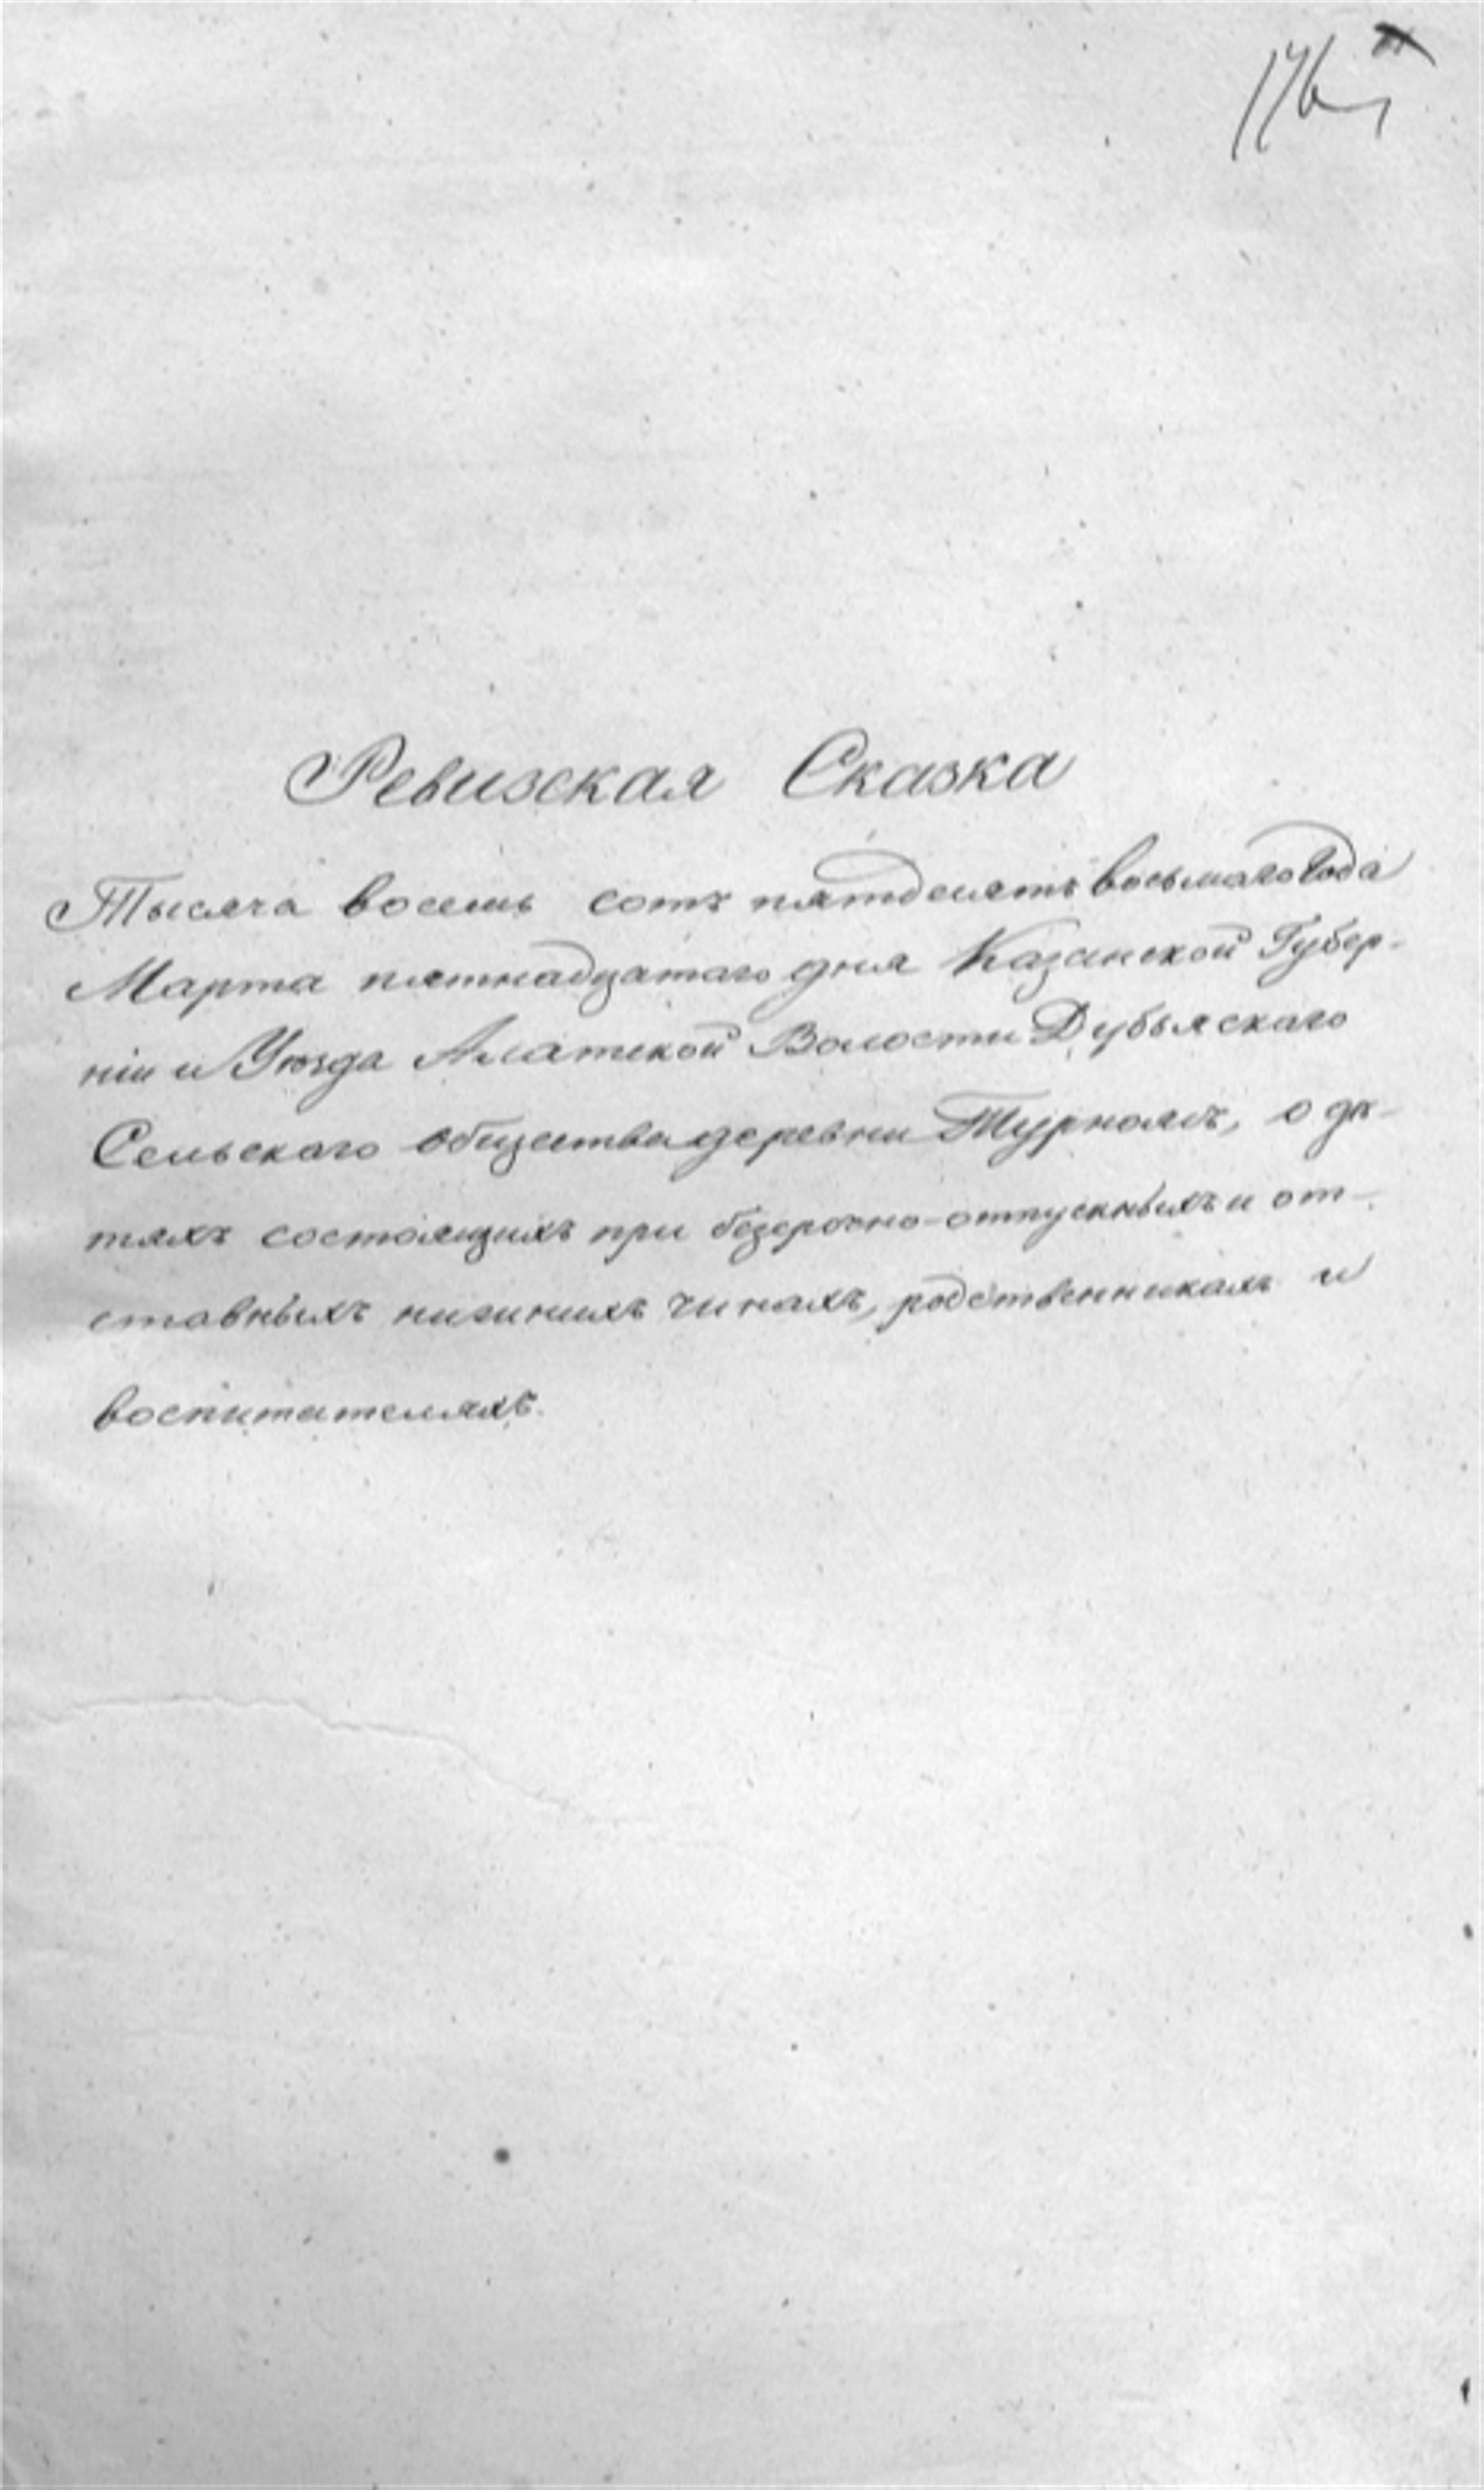 Ревизская Сказка
Тысяча восемь сотъ пятдесятъ восьмаго Года
Марта пятнадцатаго дня Казанской Губер-
ніи и Уѣзда Алатской Волости Дубьяскаго
Сельскаго общества деревни Турнояс, о дѣ-
тяхъ состоящихъ при безсрочно-отпускныхъ и от-
ставныхъ нижнихъ чинахъ, родственникахъ и
воспитателяхъ.